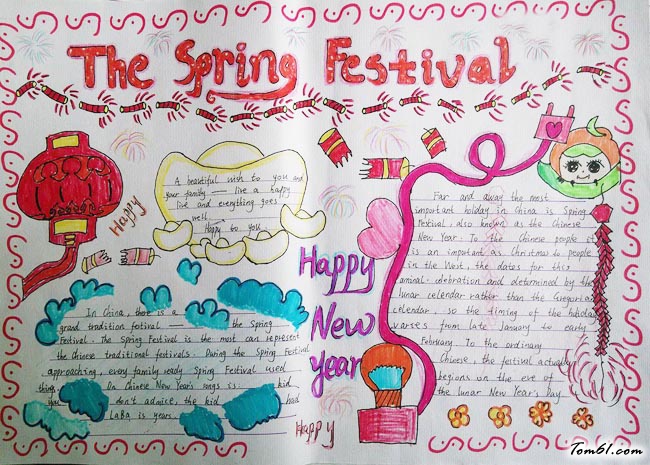 The Spring Festival
A beautiful wish to you and
your family — live a happy
live and everything goes
well.
Happy to you
Happy
Happy
New
year
Happy
In China, there is a
grand tradition fotival — the Spring
Festival. The Spring Festival is the most can represent
the Chinese traditional festivals. During the Spring Festival
approaching, every family ready Spring Festival used
thing. On Chinese New Year's songs is: kid
you don't advice, the kid had
LaBa is years.
Far and away the most
important holiday in China is Spring
Festival, also known as the Chinese
New Year. To the Chinese people it
is an important as Christmas to people
in the West, the dates for this
annual celebration and determined by the
lunar celendar rather than the Gregorian
celendar, so the timing of the holiday
varses from late January to early
February. To the ordinary
Chinese, the festival actually
begions on the eve of
the lunar New Year's Day.
Tom61.com